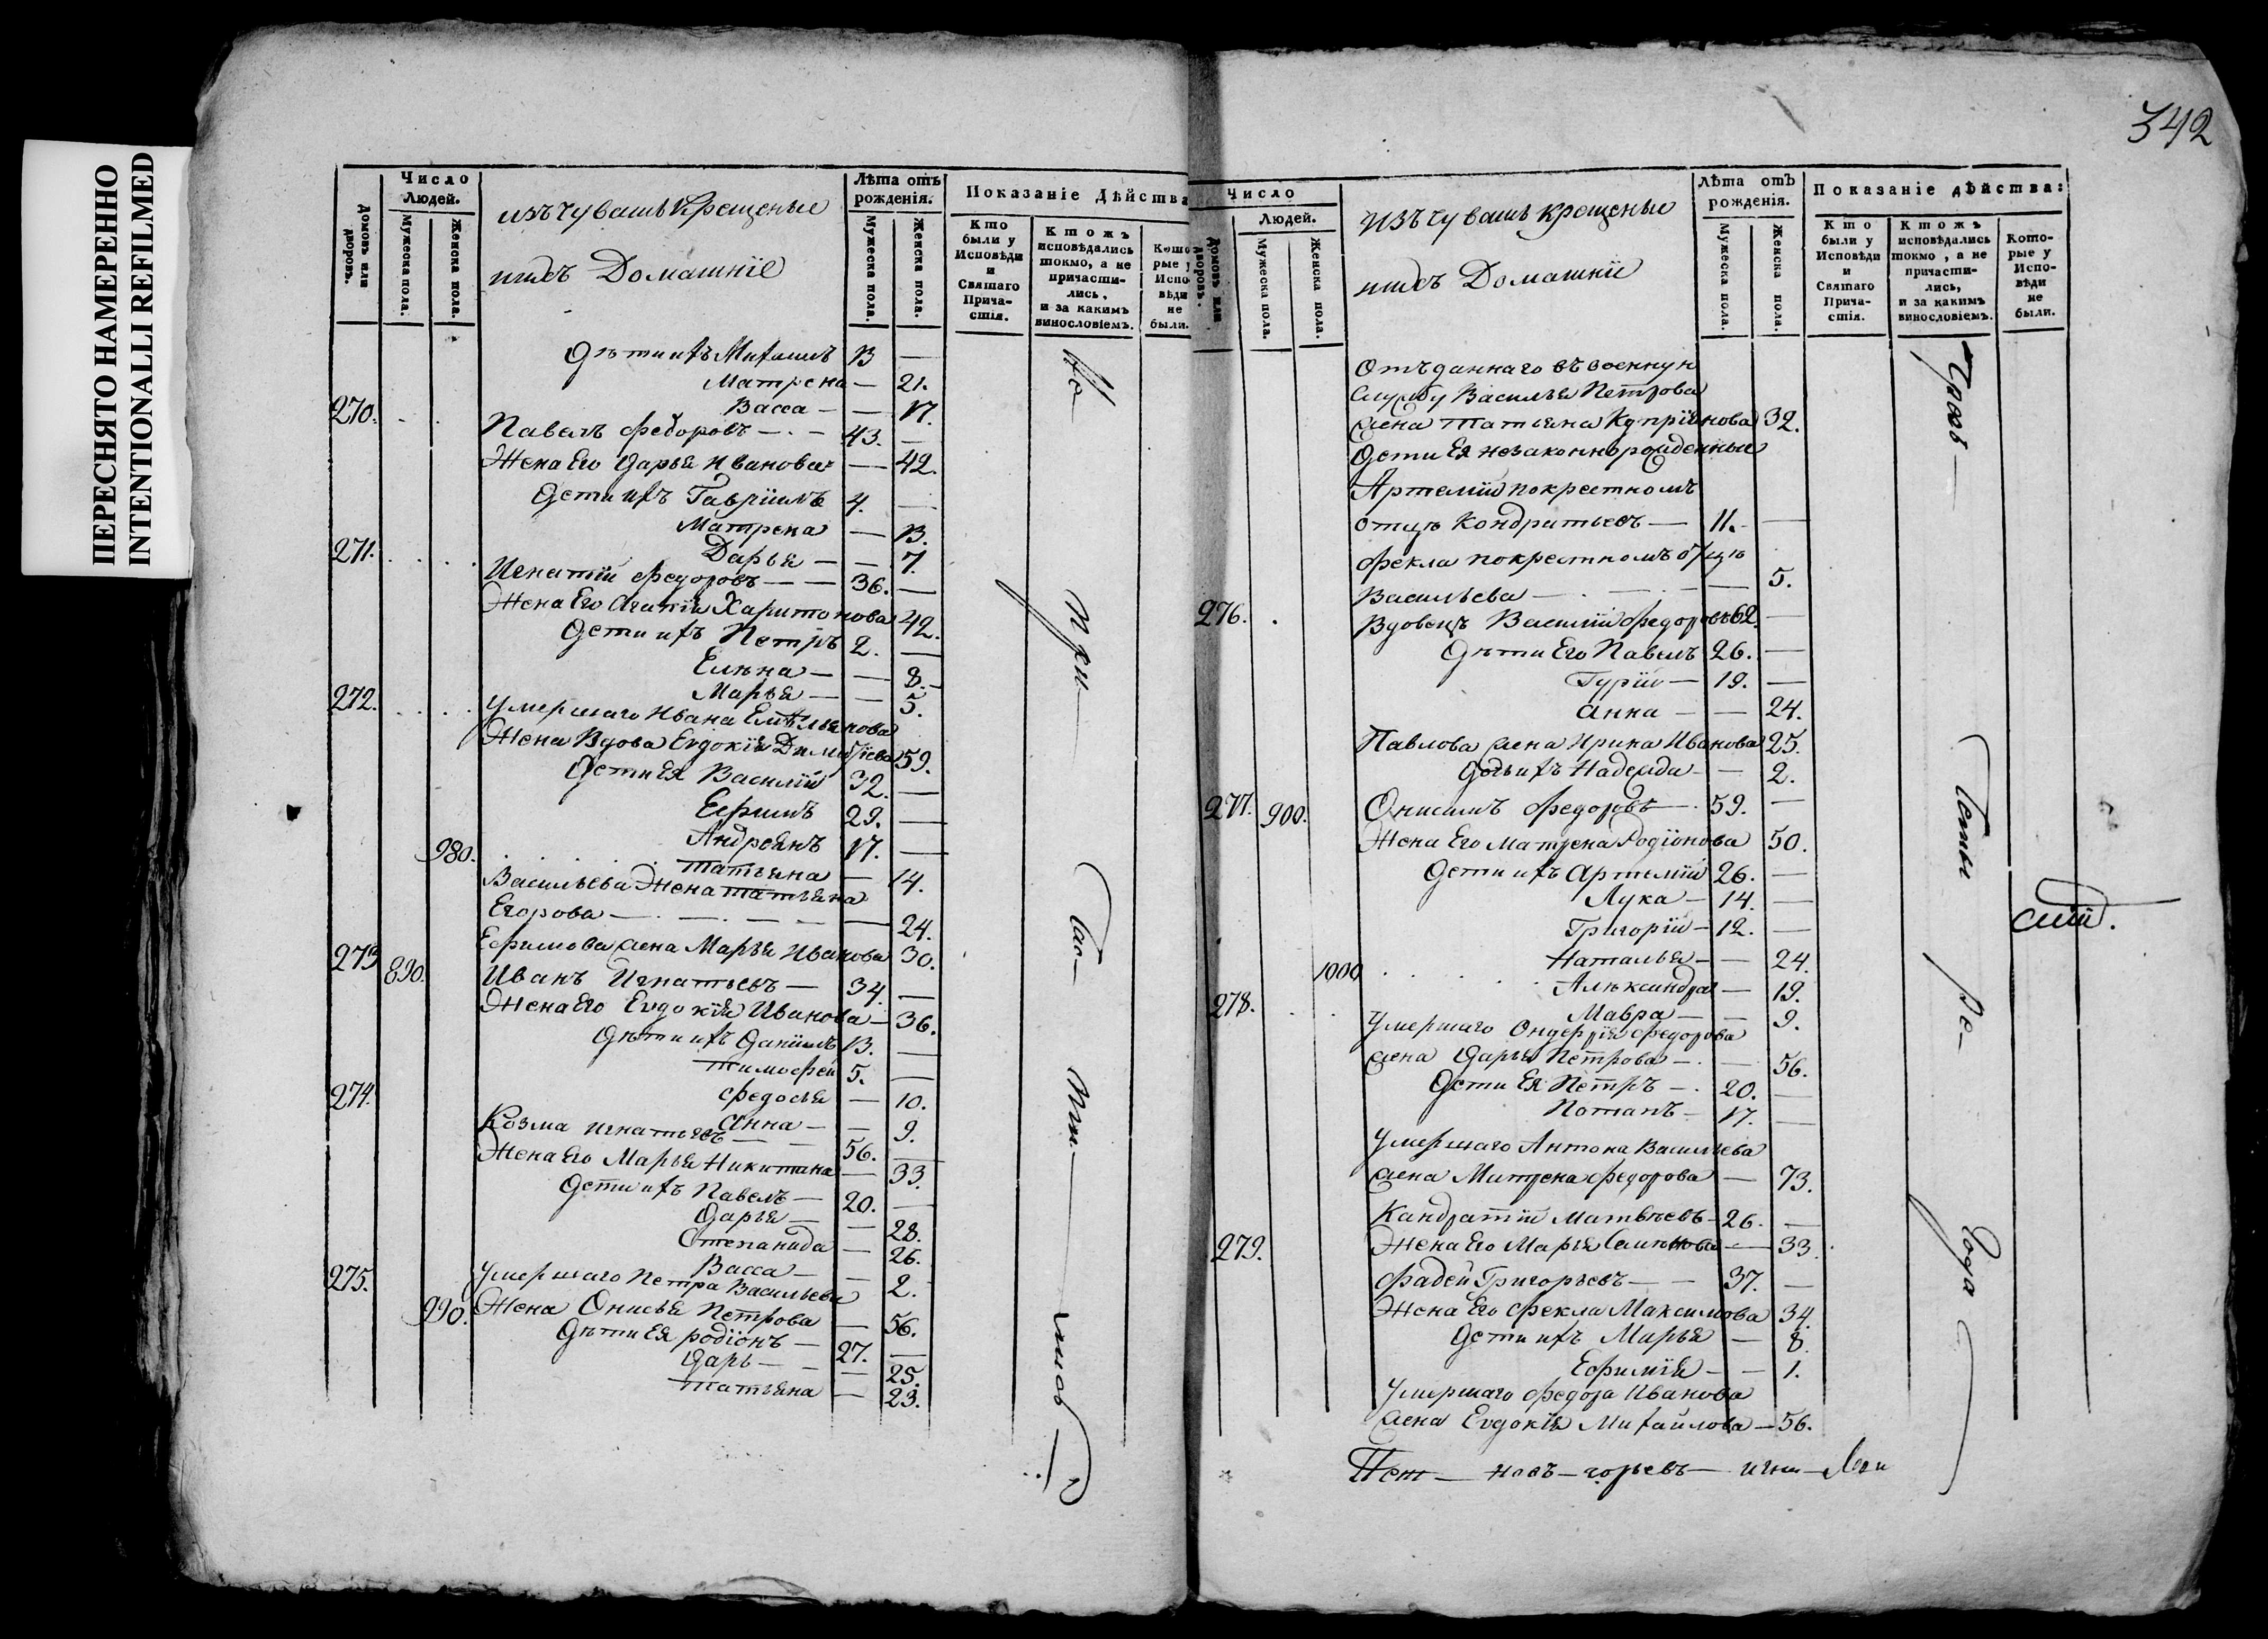 ПЕРЕСНЯТО НАМЕРЕННО
INTENTIONALLI REFILMED
Число Людей.
Домовъ или дворовъ.
Мужеска пола.
Женска пола.
изъ чувашъ крещеные
итѣхъ Домашнїе
Лѣта отъ рожденія.
Мужеска пола.
Женска пола.
Показаніе Дѣйства
Кто были у Исповѣди и Святаго Прича-стія.
Ктожъ исповѣдались токмо, а не причасти-лись, и за какимъ винословіемъ.
Кото рые у Испо вѣди не были.
Дѣти ихъ Михаилъ 13 —
Матрена — 21.
Васса — — 17.
270. Павелъ Федоровъ — 43. —
Жена Его Дарья Иванова — 42.
Дети ихъ Гаврїилъ 4. —
Матрена — 13.
Дарья — — 7.
271. Игнатїй Федоровъ — — 36. —
Жена Его Агапїя Харитонова 42.
Дети ихъ Петръ 2. —
Елѣна — — 8.
Марья — — 5.
272. Умершаго Ивана Емѣльянова
Жена Вдова Евдокїя Дмитрїева 59.
Дети Ея Василїй 32. —
Ефимъ 29. —
Андреянъ 17. —
980. Татьяна — 14.
Васильева Жена татьяна
Егорова — — — 24.
Ефимова жена Марья Иванова 30.
273 890. Иванъ Игнатьевъ — 34. —
Жена Его Евдокїя Иванова — 36.
Дѣти ихъ Данїилъ 13. —
тимофей 5. —
Федосья — 10.
Анна — — 9.
274. Козма игнатьевъ — — 56. —
Жена Его Марья Никитина — 33.
Дети ихъ Павелъ — 20. —
Дарья — — 28.
Степанида — 26.
Васса — — 2.
275. Умершаго Петра Васильева
990. Жена Онисья Петрова — 56.
Дѣти Ея родїонъ — 27. —
Дарь — — 25.
татьяна — 23.
342
Число Людей.
Домовъ или дворовъ.
Мужеска пола.
Женска пола.
изъ чувашъ крещеные
итѣхъ Домашнїе
Лѣта отъ рожденія.
Мужеска пола.
Женска пола.
Показаніе дѣйства:
Кто были у Исповѣди и Святаго Прича-стія.
Ктожъ исповѣдались токмо, а не причасти-лись, и за какимъ винословіемъ.
Кото-рые у Испо-вѣди не были.
Отъданнаго въ военную
службу Василья Петрова
жена татьяна Купрїянова 32.
Дети Ея незаконнорожденные
Артемїй покрестномъ
отцѣ Кондратьевъ — 11. —
Фекла покрестномъ отцѣ
Васильева — — — 5.
276. Вдовецъ Василїй Федоровъ 62. —
Дѣти Его Павелъ 26. —
Гурїй — 19. —
Анна — — 24.
Павлова жена Ирина Иванова 25.
Дочь ихъ Надежда — — 2.
277. 900. Онисимъ Федоровъ — 59. —
Жена Его Матрена Родїонова 50.
Дети ихъ Артемїй 26. —
Лука — 14. —
Григорїй — 12. —
Наталья — — 24.
1000 Алѣксандра — 19.
Мавра — — 9.
278. Умершаго Федорова
жена Дарья Петрова — — 56.
Дети Ея Петръ — 20. —
Потапъ — 17. —
Умершаго Антона Васильева
жена Матрена Федорова — 73.
Кандратїй Матвѣевъ — 26. —
Жена Его Марья — 33.
279. Фадей Григорьевъ — — 37. —
Жена Его Фекла Максимова 34.
Дети ихъ Марья — 8.
Ефимїя — — 1.
Умершаго Федора Иванова
жена Евдокїя Михайлова — 56.